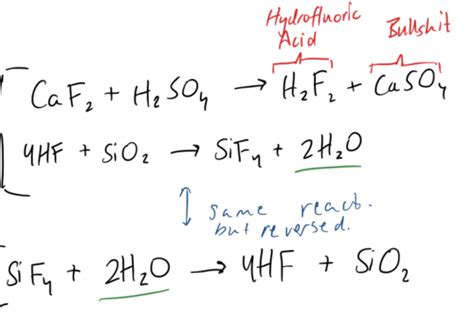 Hydrofluoric Acid
Bullshit
CaF₂ + H₂SO₄ → H₂F₂ + CaSO₄
4HF + SiO₂ → SiF₄ + 2H₂O
↕ same react.
but reversed.
SiF₄ + 2H₂O → 4HF + SiO₂